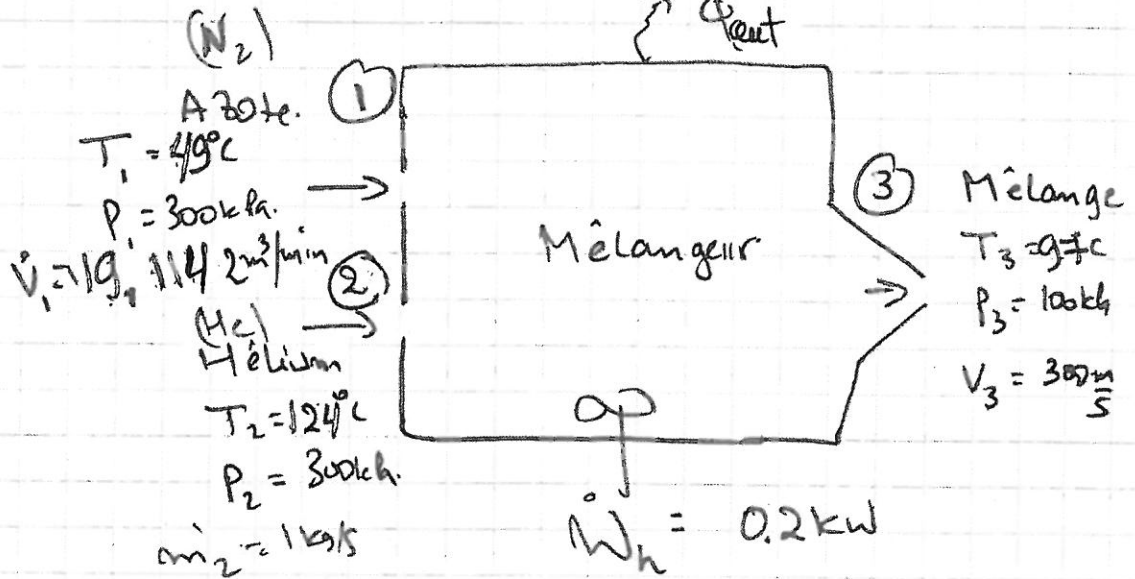 (N₂)
Azote.
①
T₁ = 49°C
P₁ = 300 kPa.
V̇₁ = 19,1142 m³/min
②
(He)
Hélium
T₂ = 124°C
P₂ = 300 kPa.
ṁ₂ = 1 kg/s
Qout
Mêlangeur
Ẇh = 0.2 kW
③ Mêlange
T₃ = 97°C
P₃ = 100 kPa
V₃ = 300 m/s